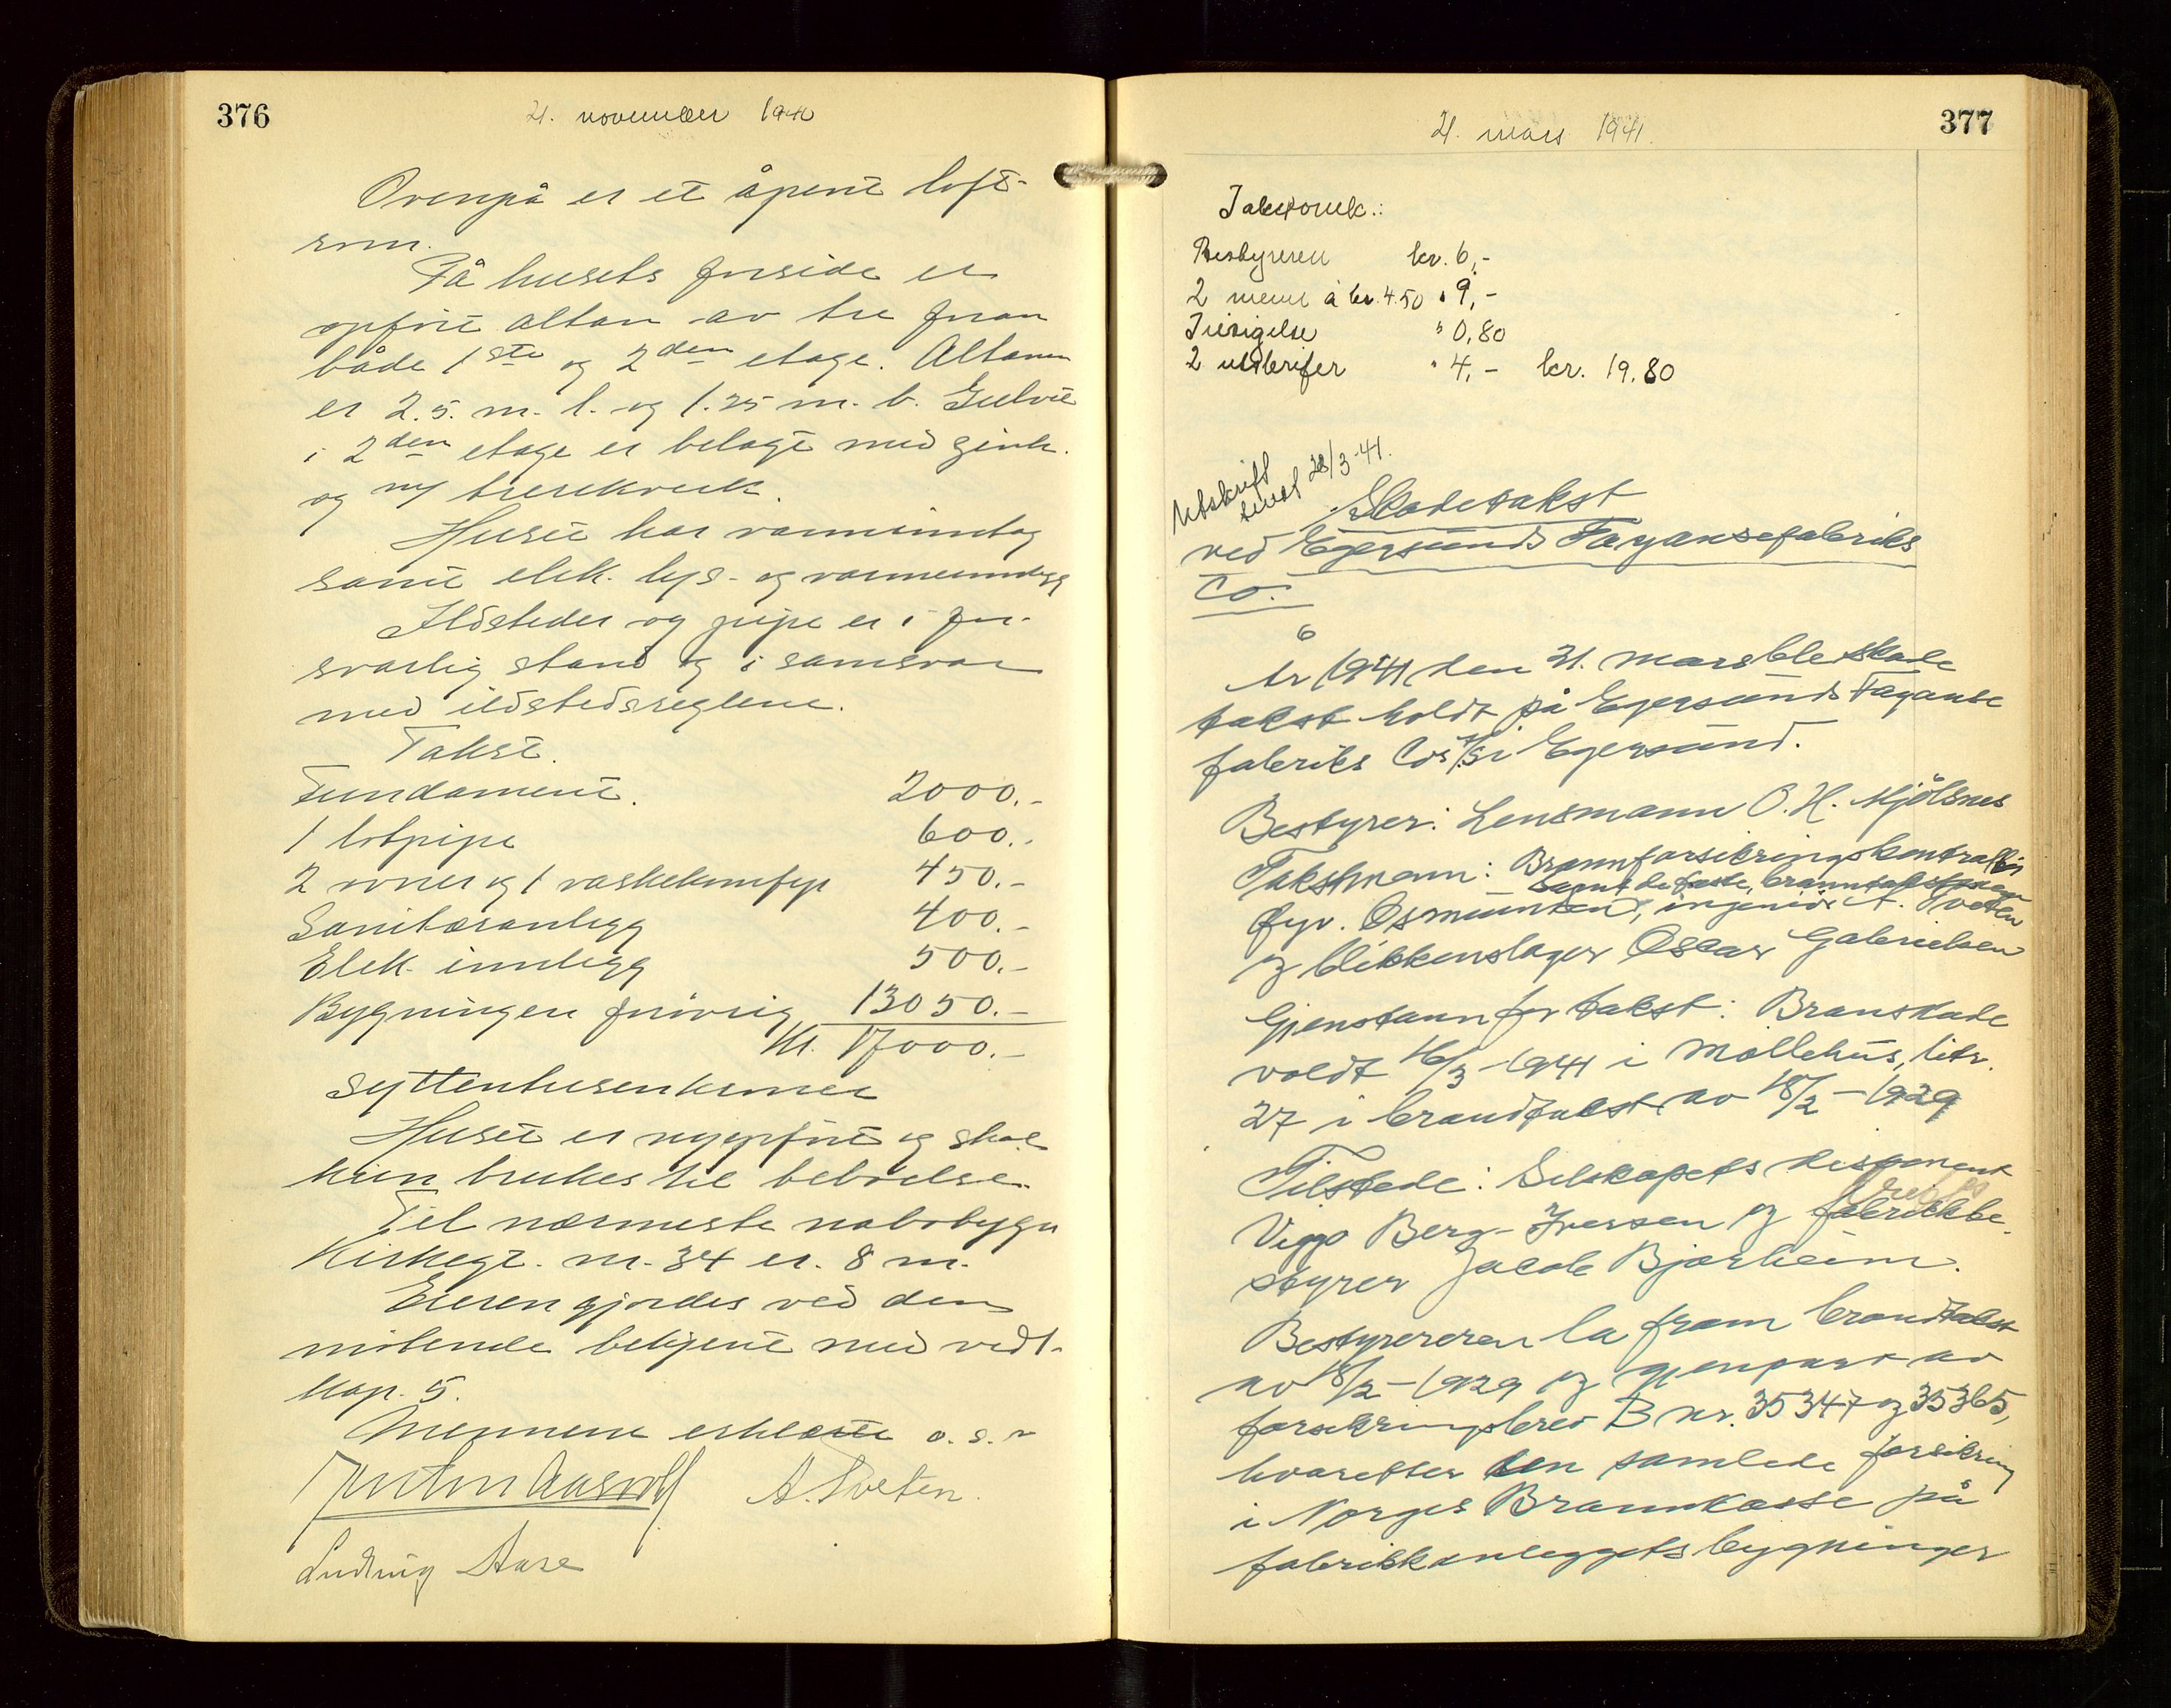 376
21. november 1940
Ovenpå er et åpent lofts-
rom.
På husets forside er
opført altan av tre foran
både 1ste og 2den etage. Altanen
er 2.5. m. l. og 1.25 m. b. Gulvet
i 2den etage er belagt med zink.
og m/ trerekverk.
Huset har vanninntag
samt elek. lys- og varmeinnlegg
Ildsteder og pipe er i for-
svarlig stand og i samsvar
med ildstedsreglene.
Takst.
Fundament. 2000.-
1 lobpipe 600.-
2 ovner og 1 vaskekomfyr 450.-
Sanitæranlegg 400.-
Elek. innlegg 500.-
Bygningen forøvrig 13050.-
Kr. 17000.-
syttentusenkroner
Huset er nyopført og skal
kun brukes til beboelse.
Til nærmeste nabobygn
Kirkegt. nr. 34 er. 8 m.
Eieren gjordes ved den
møtende bekjent med vedt.
kap. 5.
Mennene erklærte o.s.v
A. Tveten.
Ludvig Aase
377
21. mars 1941.
Bestyreren kr. 6,-
2 menn à kr. 4.50 " 9,-
" 0,80
2 utskrifter " 4,- kr. 19.80
Utskrift
sendt 28/3-41.
Skadetakst
ved Egersunds Fayansefabriks
Co.
6
År 1941 den 21. mars ble skade
takst holdt på Egersunds Fayanse
fabriks Co's A/S i Egersund.
Bestyrer: Lensmann O. H. Mjølsnes
Takstmenn: Brannforsikringskontrollør
samt de faste branntakstmenn
fyv. Osmundsen, ingeniør A. Tveten
og blikkenslager Oscar Gabrielsen
Gjenstann for takst: Branskade
voldt 16/3-1941 i Møllehus, litr.
27 i brandtakst av 18/2-1929
Tilstede: Selskapets disponent
Viggo Berg-Iversen og fabrikkbe-
styrer Jacob Bjørheim.
Bestyreren la fram brandtakst
av 18/2-1929 og gjenpart av
forsikringsbrev B nr. 35347 og 35365,
hvoretter den samlede forsikring
i Norges Brannkasse på
fabrikkanleggets bygninger